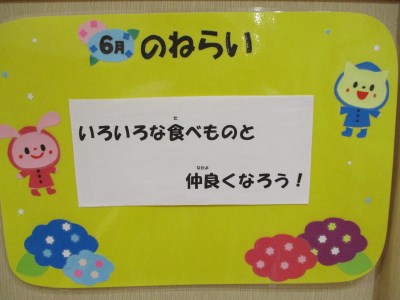 6月のねらい
いろいろな食べものと
仲良くなろう！